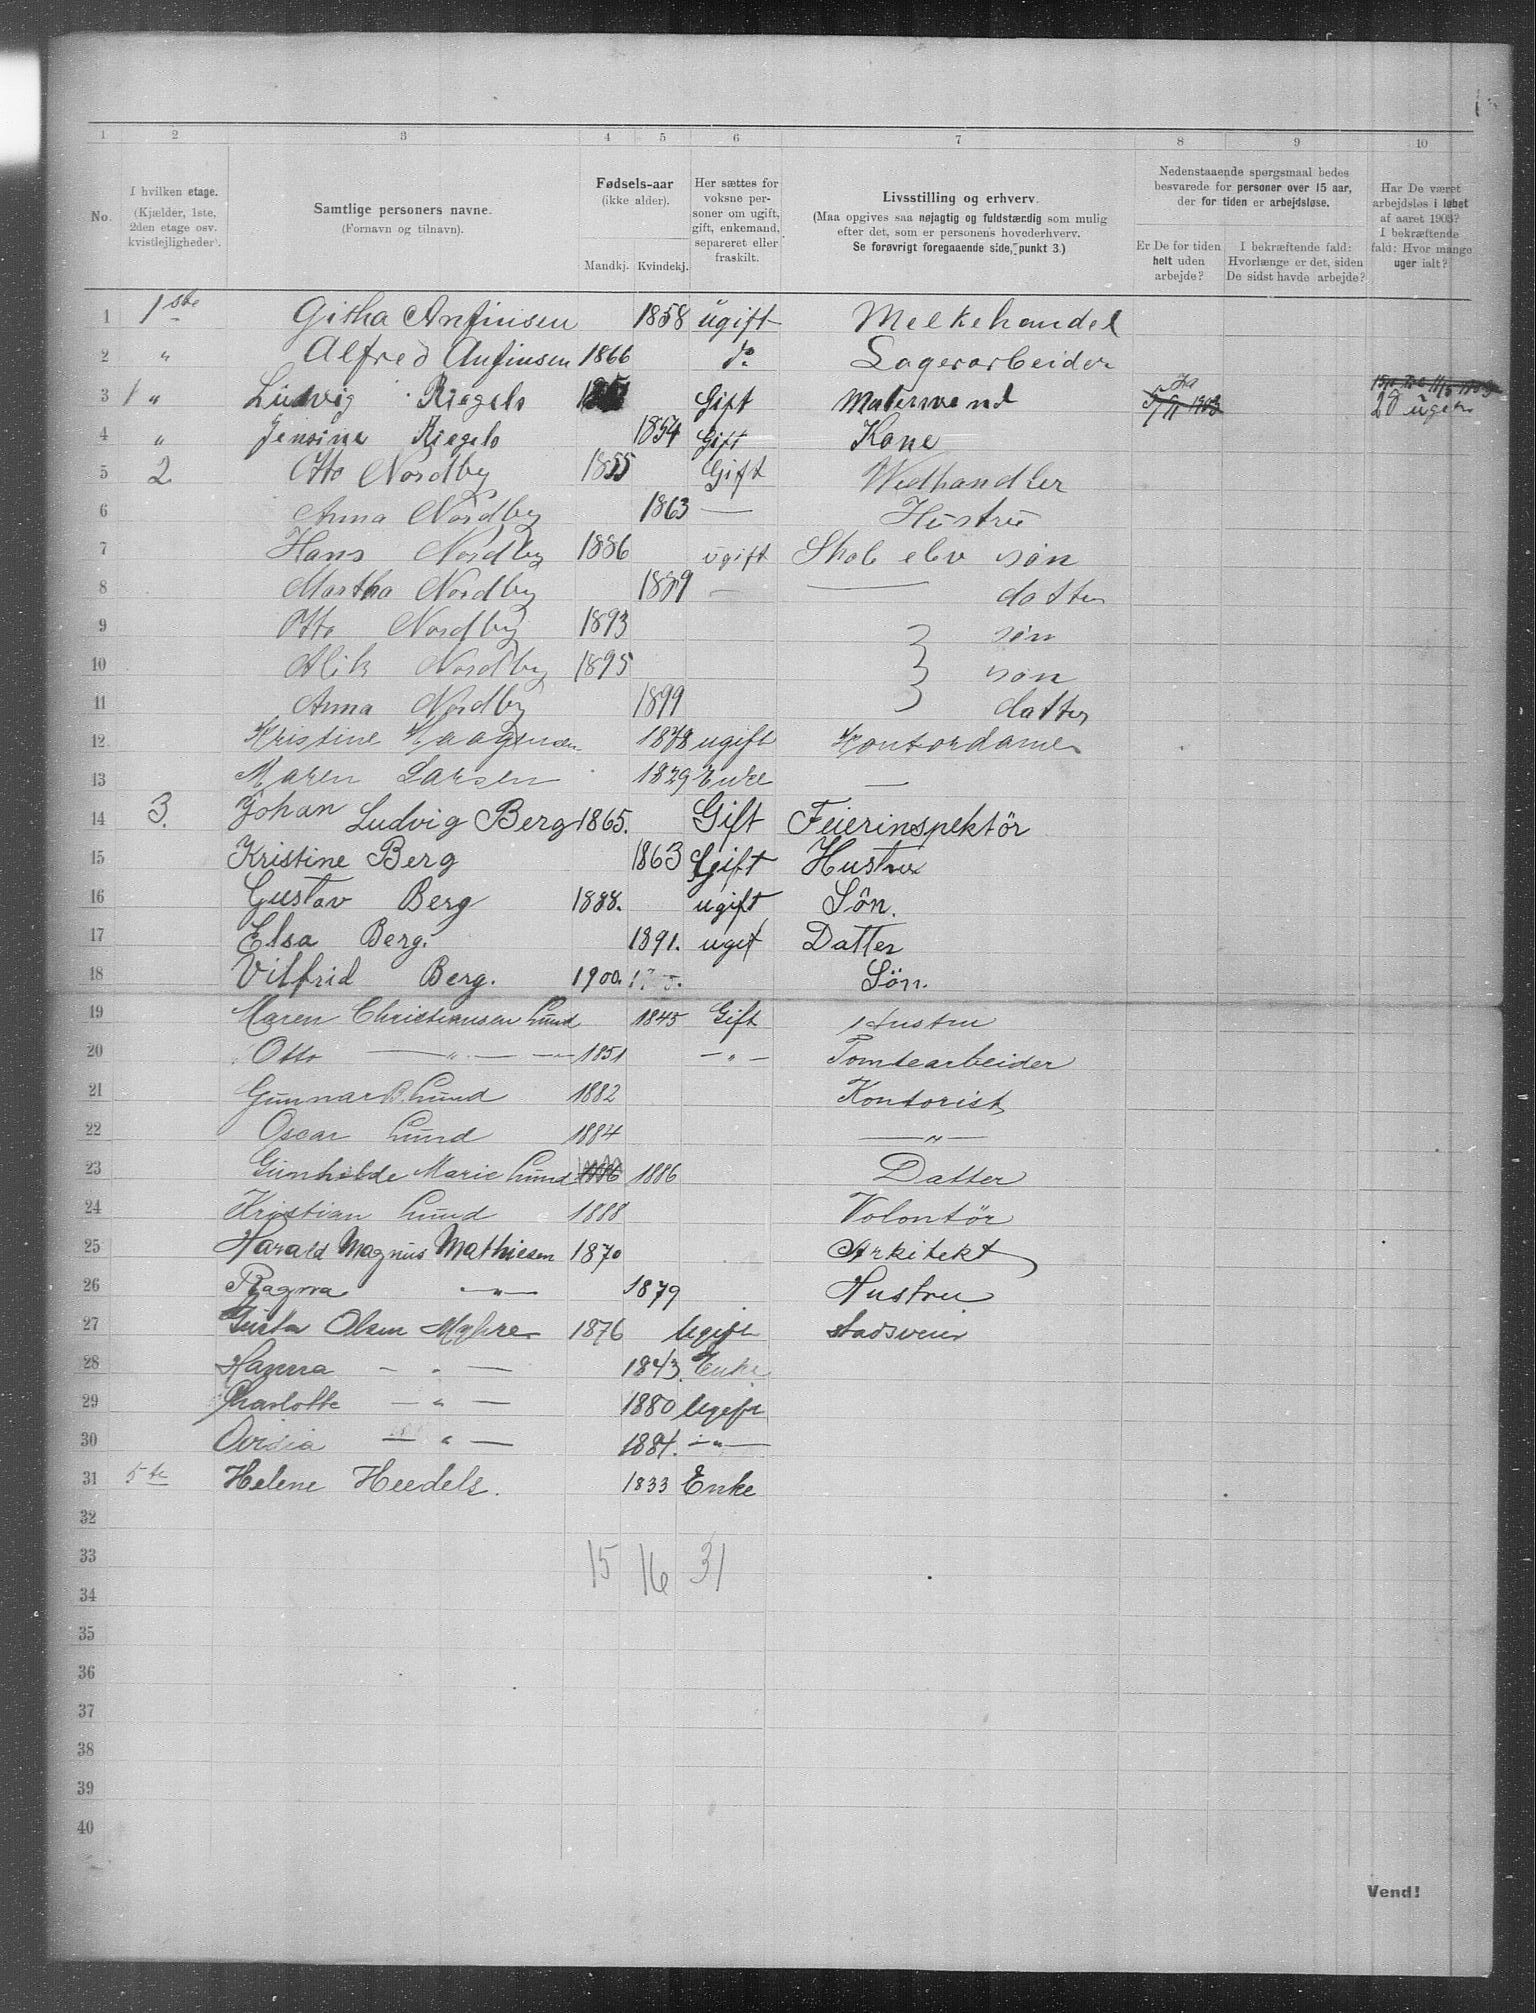 1 2 3 4 5 6 7 8 9 10
No. I hvilken etage. (Kjælder, 1ste, 2den etage osv. kvistlejligheder). Samtlige personers navne. (Fornavn og tilnavn). Fødsels-aar (ikke alder). Mandkj. Kvindekj. Her sættes for voksne personer om ugift, gift, enkemand, separeret eller fraskilt. Livsstilling og erhverv. (Maa opgives saa nøjagtig og fuldstændig som mulig efter det, som er personens hovederhverv. Se forøvrigt foregaaende side, punkt 3.) Nedenstaaende spørgsmaal bedes besvarede for personer over 15 aar, der for tiden er arbejdsløse. Er De for tiden helt uden arbejde? I bekræftende fald: Hvorlænge er det, siden De sidst havde arbejde? Har De været arbejdsløs i løbet af aaret 1903? I bekræftende fald: Hvor mange uger ialt?
1 1ste Githa Anfinsen 1858 ugift Melkehandel
2 " Alfred Anfinsen 1866 do Lagerarbeider
3 / " Ludvig Riegels Gift Malersvend Ja 28 uger
4 " Jensine Riegels 1854 Gift Kone
5 2 Otto Nordby 1855 Gift Wedhandler
6 Anna Nordby 1863 — Hustru
7 Hans Nordby 1886 ugift Skol elev søn
8 Martha Nordby 1889 — — datter
9 Otto Nordby 1893 } søn
10 Alik Nordby 1895 } søn
11 Anna Nordby 1899 } datter
12 Kristine Haagensen 1878 ugift Kontordame
13 Maren Larsen 1829 Enke —
14 3. Johan Ludvig Berg 1865. Gift Feierinspektör
15 Kristine Berg 1863 Gift Hustru
16 Gustav Berg 1888. ugift Sön.
17 Elsa Berg. 1891. ugift Datter
18 Vilfrid Berg. 1900. Sön.
19 Maren Christiansen Lund 1845 Gift Hustru
20 Otto — " — — 1851 — " — Tomtearbeider
21 Gunnar B. Lund 1882 Kontorist
22 Oscar Lund 1884 — " —
23 Gunhilde Marie Lund 1886 1886 Datter
24 Kristian Lund 1888 Volontör
25 Harald Magnus Mathiesen 1870 Arkitekt
26 Ragna — " — 1879 Hustru
27 Olsen Myhre 1876 Ugift Stadsveier
28 Hanna — " — 1843. Enke
29 Charlotte — " — 1880 Ugift
30 Ovidia — " — 1884. — " —
31 5te Helene Heedels. 1833 Enke
32
33 15 16 31
34
35
36
37
38
39
40
Vend!